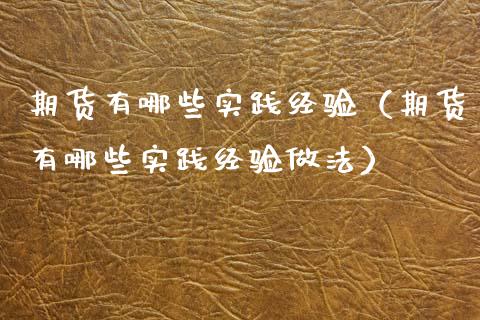 期货有哪些实践经验（期货
有哪些实践经验做法）